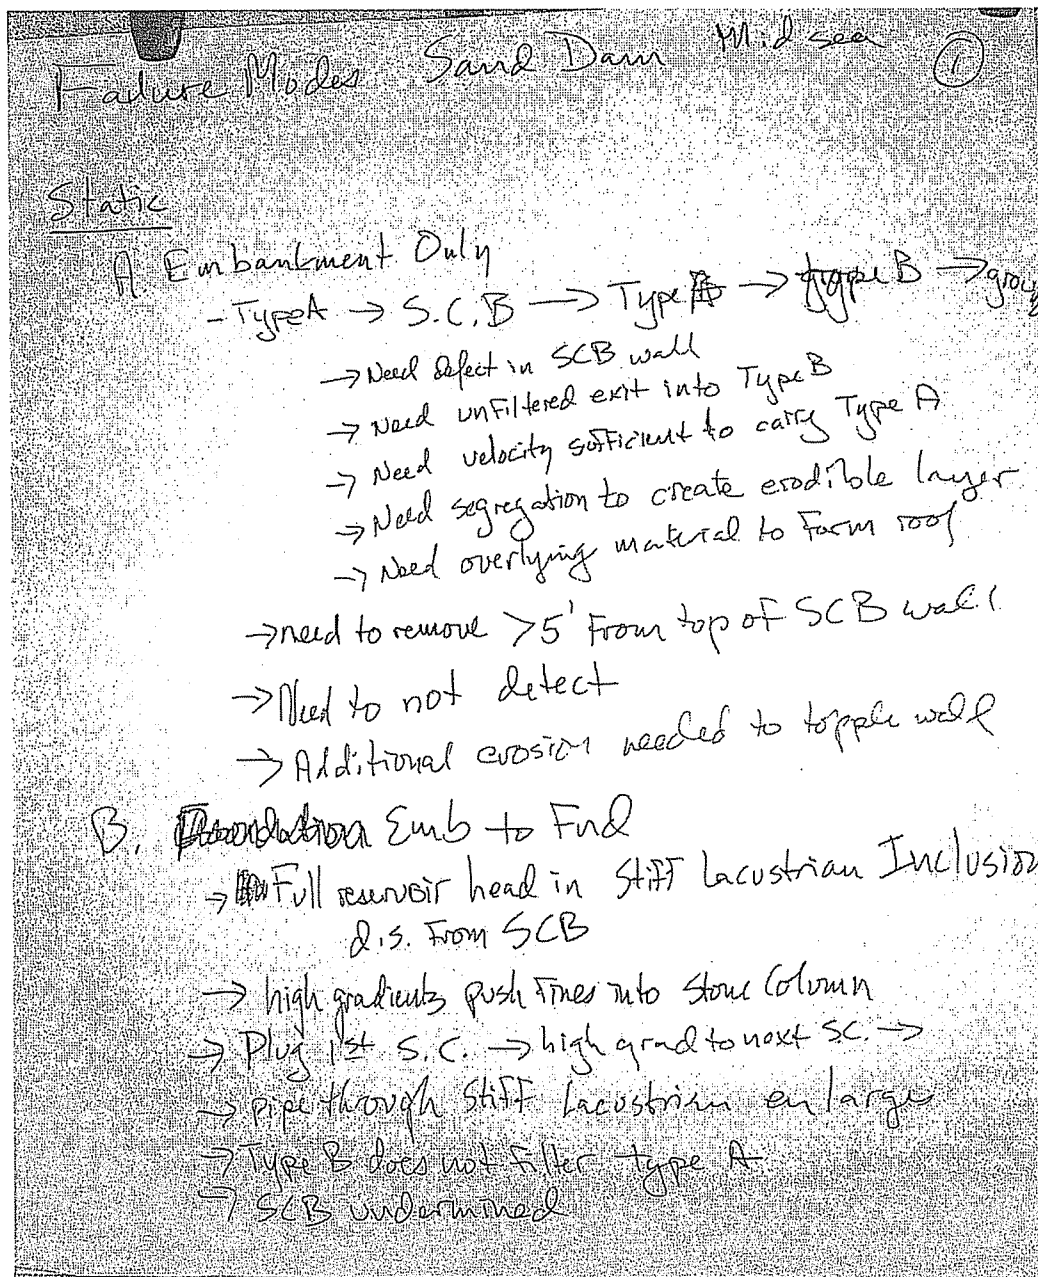 Failure Modes Sand Dam Midsea ①
Static
A Embankment Only
- Type A → S.C.B → Type A → type B →
→ Need defect in SCB wall
→ Need unfiltered exit into Type B
→ Need velocity sufficient to carry Type A
→ Need segregation to create erodible layer
→ Need overlying material to form roof
→ need to remove >5' from top of SCB wall
→ Need to not detect
→ Additional erosion needed to topple wall
B. Foundation Emb to Fnd
→ Full reservoir head in Stiff Lacustrian Inclusion
d.s. From SCB
→ high gradients push fines into Stone Column
→ Plug 1st S.C. → high grad to next S.C. →
→ pipe through Stiff Lacustrian enlarge
→ Type B does not filter type A
→ SCB undermined